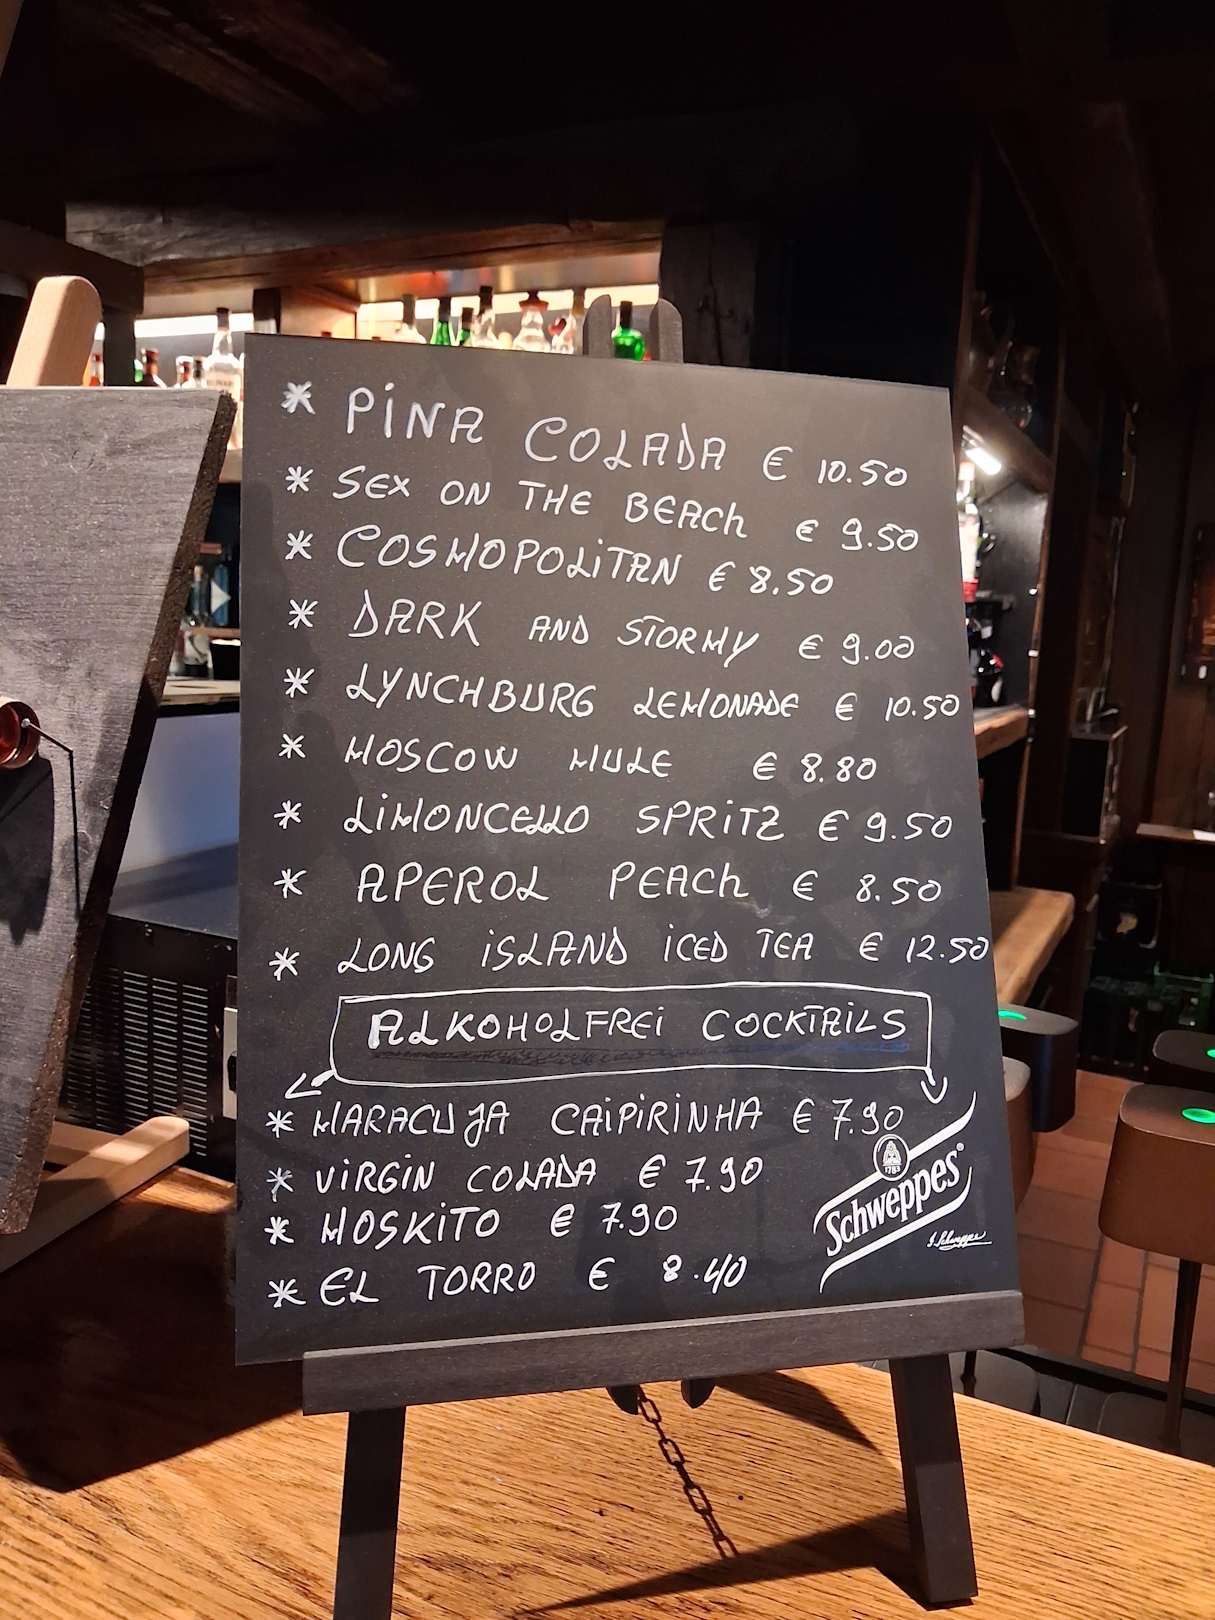 * PINA COLADA € 10.50
* SEX ON THE BEACH € 9.50
* COSMOPOLITAN € 8.50
* DARK AND STORMY € 9.00
* LYNCHBURG LEMONADE € 10.50
* MOSCOW MULE € 8.80
* LIMONCELLO SPRITZ € 9.50
* APEROL PEACH € 8.50
* LONG ISLAND ICED TEA € 12.50
ALKOHOLFREI COCKTAILS
* MARACUJA CAIPIRINHA € 7.90
* VIRGIN COLADA € 7.90
* MOSKITO € 7.90
* EL TORRO € 8.40
1783
Schweppes
J. Schweppe